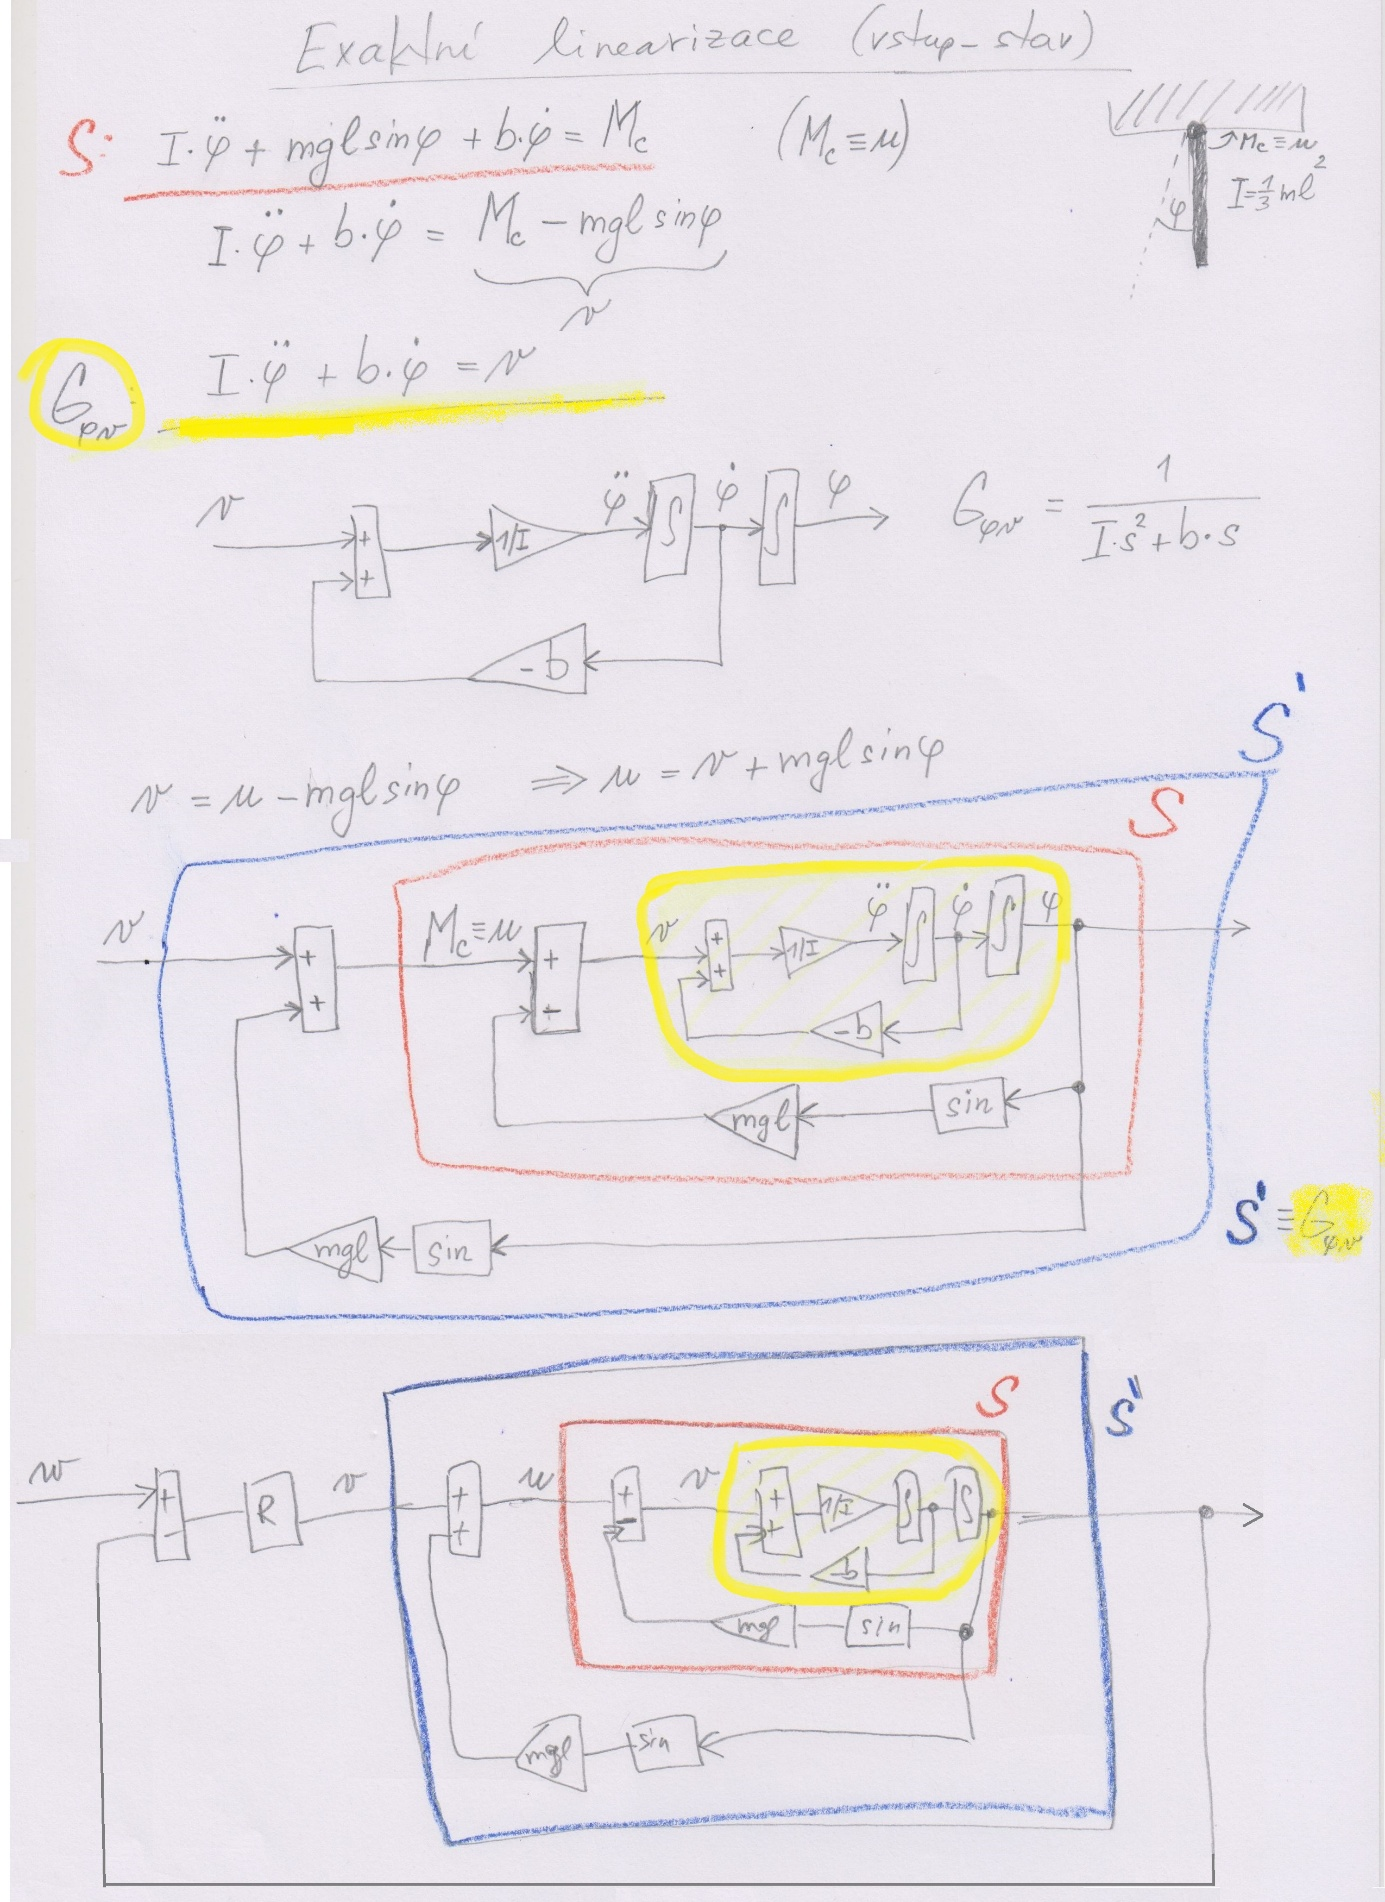 Exaktní linearizace (vstup-stav)
S: I·φ̈ + mglsinφ + b·φ̇ = Mc (Mc ≡ u)
↗Mc ≡ u
I=⅓ml²
φ
I·φ̈ + b·φ̇ = Mc − mglsinφ
v
Gφv I·φ̈ + b·φ̇ = v
v + + 1/I φ̈ ∫ φ̇ ∫ φ
-b
Gφv = 1/(I·s²+b·s)
S'
v = u − mglsinφ ⇒ u = v + mglsinφ
S
v + + Mc≡u + − v + + 1/I φ̈ ∫ φ̇ ∫ φ
-b
mgl sin
mgl sin
S' ≡ Gφv
S
S'
w + − R v + + u + − v + + 1/I ∫ ∫
-b
mgl sin
mgl sin